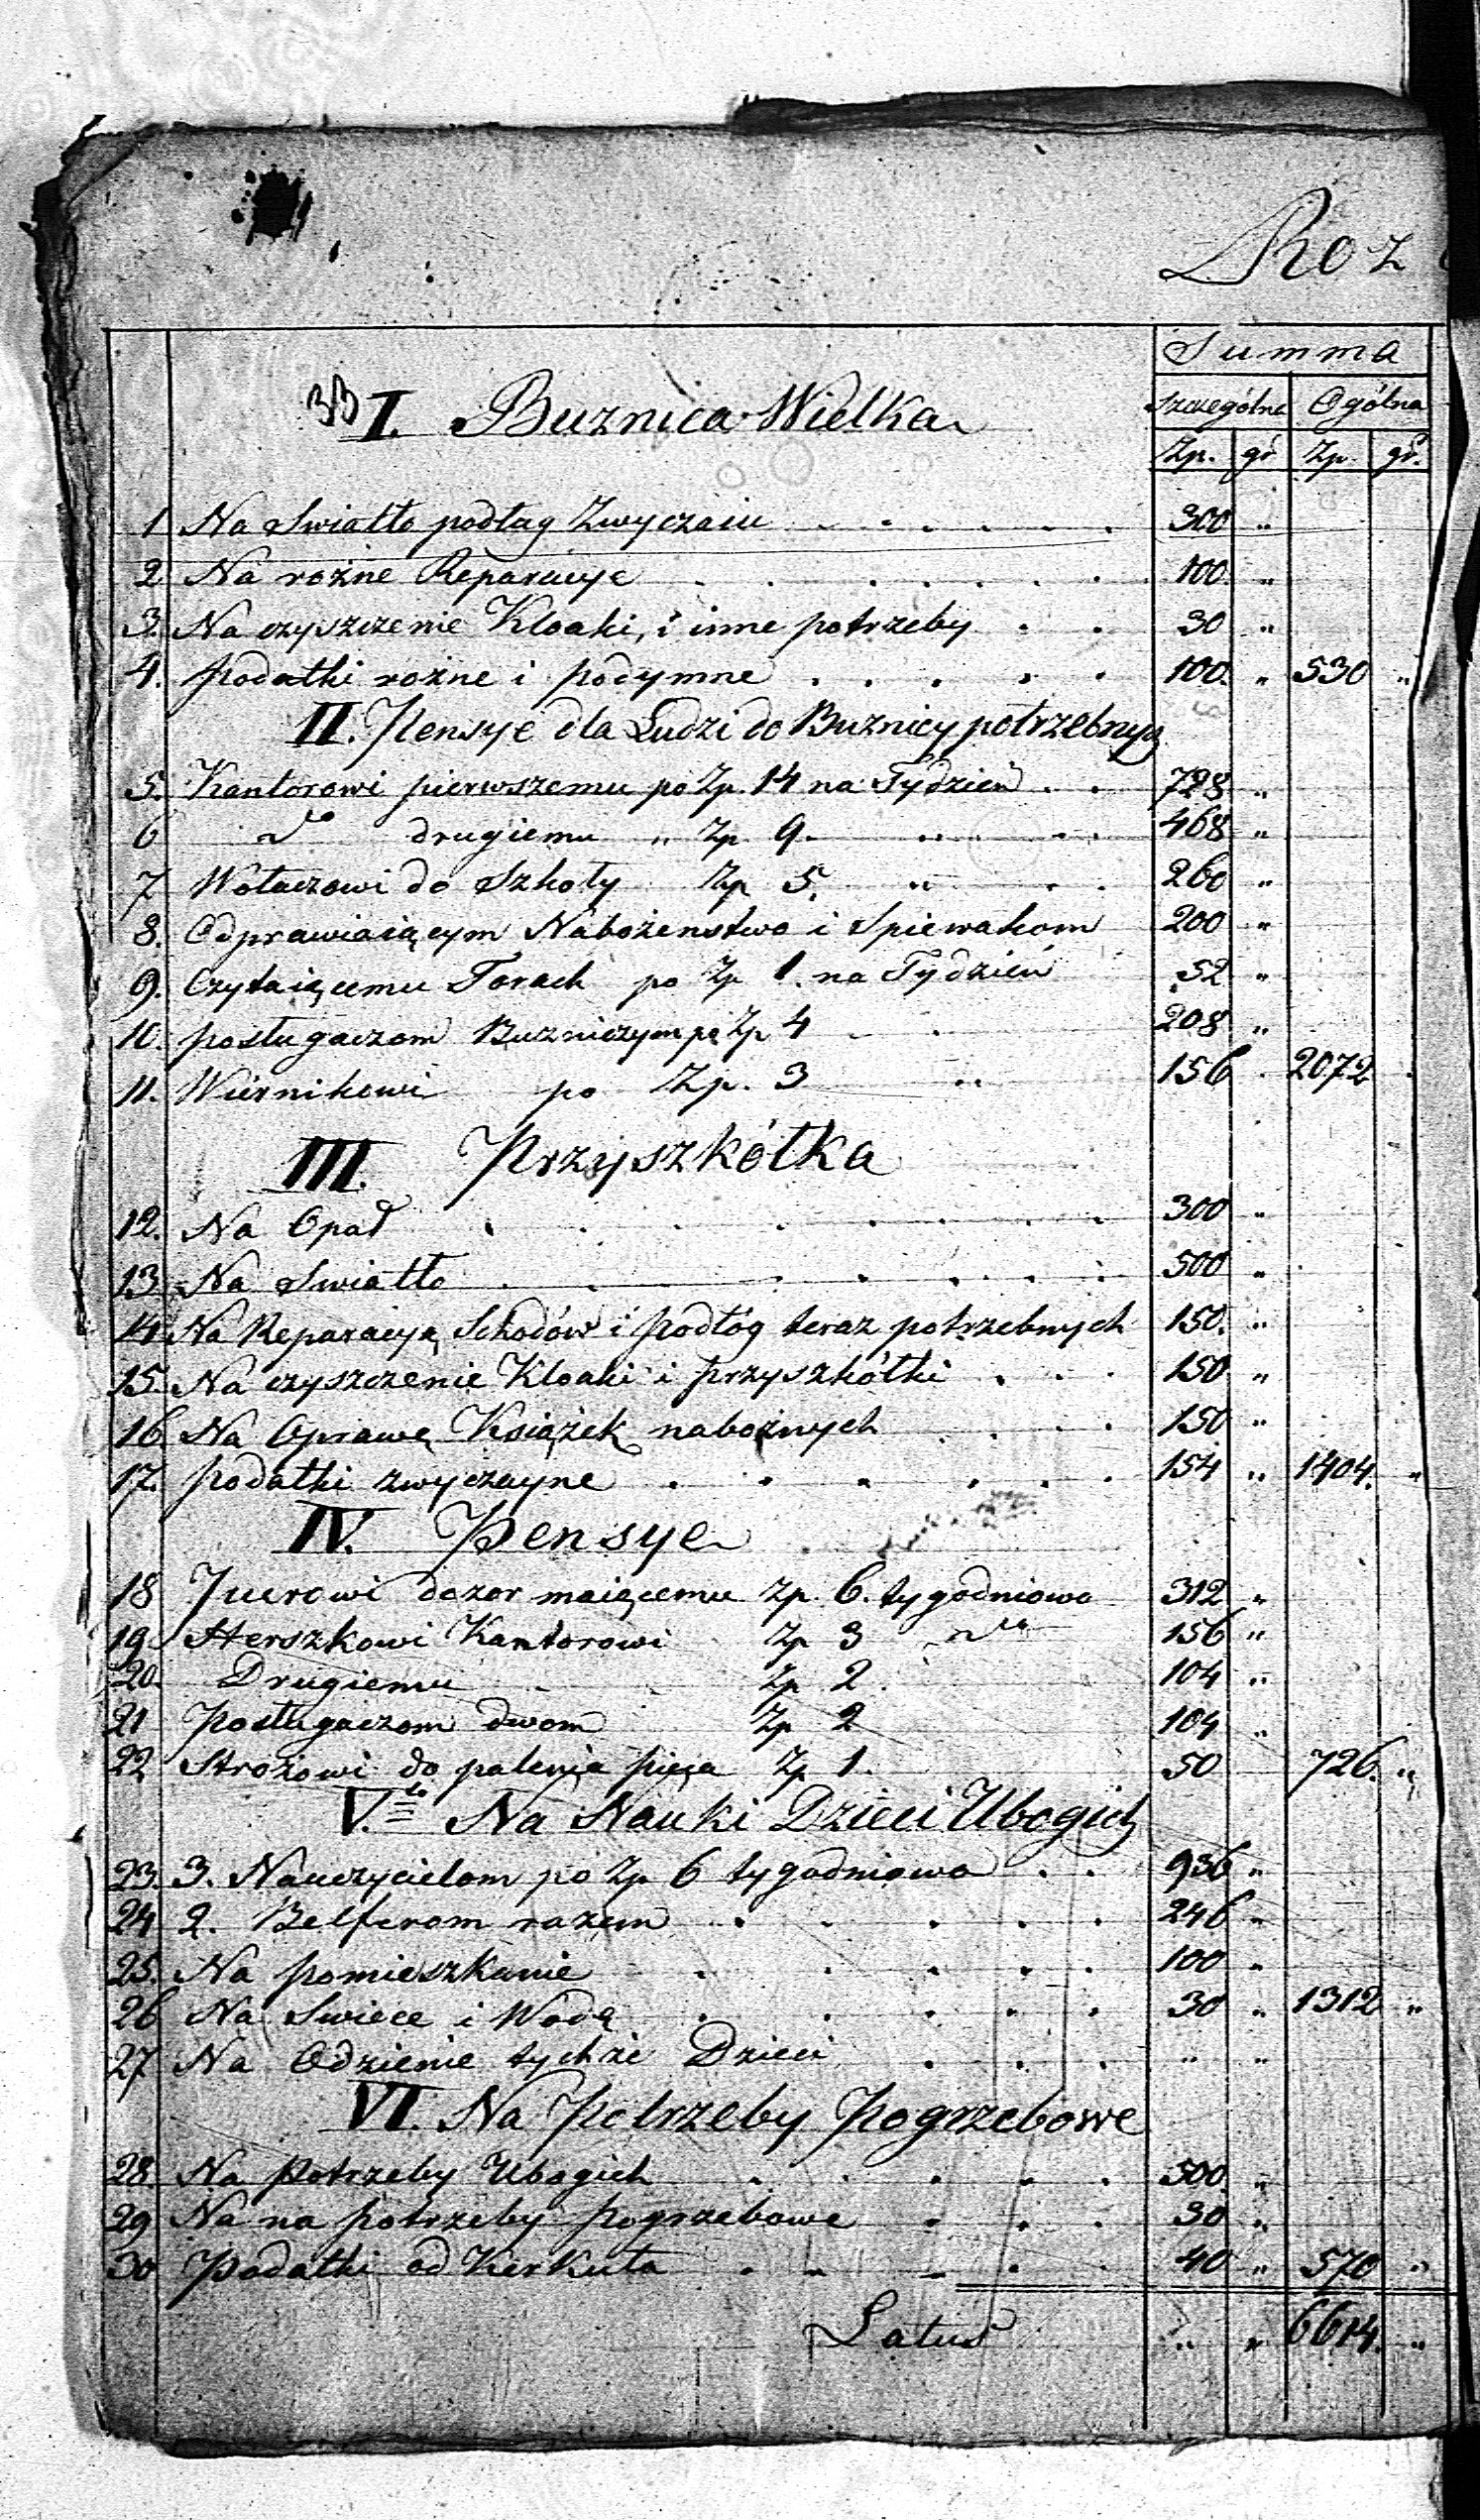 Roz
Summa
szczególna Ogólna
Zp. gr Zp. gr.
33 I. Buznica Wielka
1 Na Swiatło podług Zwyczaiu . . . . . . 300 "
2 Na rożne Reparacye . . . . . . 100 "
3. Na czyszczenie Kloaki, i inne potrzeby . . 30 "
4. podatki rożne i podymne . . . . . 100. " 530 "
II. Pensye dla Ludzi do Buznicy potrzebnych
5. Kantorowi pierwszemu po Zp. 14 na Tydzień . . 728 "
6 do drugiemu " Zp 9. " . . 468 "
7 Wołaczowi do Szkoły Zp 5. " . . 260 "
8. Odprawiaiącym Nabożenstwo i Spiewakom 200 "
9. Czytaiącemu Torach po Zp 1. na Tydzień 52 "
10. posługaczom Buzniczym po Zp 4 . . 208 "
11. Wiernikowi po Zp. 3 " 156 . 2072 .
III. Przyszkółka
12. Na Opał . . . . . . . 300 "
13 Na Swiatło . . . . . . . 500 "
14 Na Reparacyą Schodów i podłóg teraz potrzebnych 150. "
15. Na czyszczenie Kloaki i przyszkółki . . . 150 "
16 Na Oprawę Książek nabożnych . . . . 150 "
17. podatki zwyczayne . . . . . . 154 " 1404. "
IV. Pensye
18 Jucrowi dozor maiącemu Zp. 6. tygodniowo 312 "
19. Herszkowi Kantorowi Zp 3 do 156 "
20. Drugiemu Zp 2. 104 "
21 Posługaczom dwom Zp 2 104 "
22 Strożowi do palenia pieca Zp 1. 50 726. "
V.to Na Nauki Dzieci Ubogich
23. 3. Nauczycielom po Zp 6 tygodniowo . . 936 "
24 2. Belferom razem . . . . . 246 "
25. Na pomieszkanie . . . . . 100 "
26 Na Swiece i Wodę . . . . . 30 " 1312 "
27 Na Odzienie tychże Dzieci . . . " "
VI. Na Potrzeby Pogrzebowe
28. Na Potrzeby Ubogich . . . . . 500. "
29 Na na potrzeby pogrzebowe . . . 30 "
30 Podatki od Kierkuta . . . . . 40 " 570 "
Latus " " 6614. "